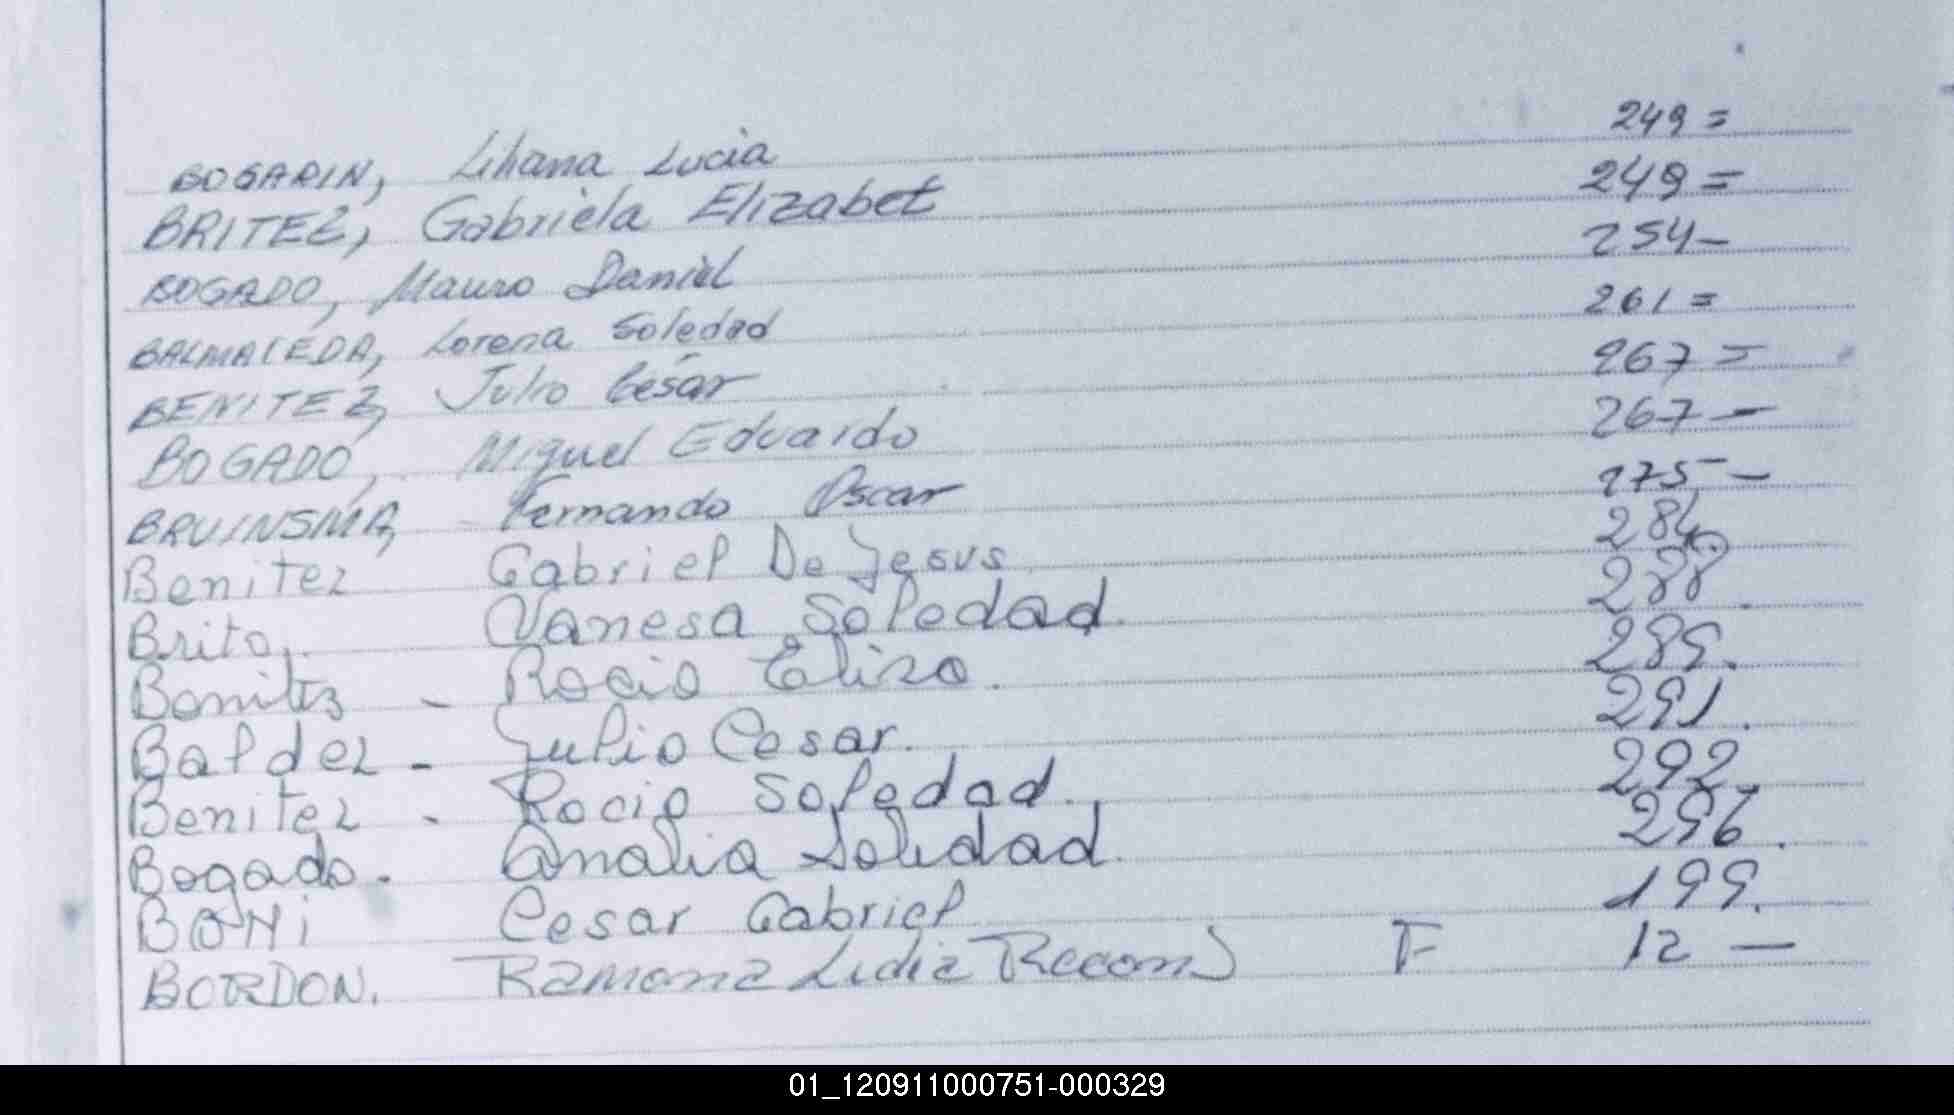 BOGARIN, Liliana Lucia 249 =
BRITEZ, Gabriela Elizabet 249 =
BOGADO, Mauro Daniel 254 -
BALMACEDA, Lorena Soledad 261 =
BENITEZ, Julio César 267 =
BOGADO, Miguel Eduardo 267 -
BRUINSMA, Fernando Oscar 275 -
Benitez Gabriel De Jesus 284
Brito. Vanesa Soledad. 288.
Benitez - Rocio Eliza. 289.
Baldez - Julio Cesar. 291.
Benitez - Rocio Soledad. 292.
Bogado. Analia Soledad. 296.
BONi Cesar Gabriel 199.
BORDON. Ramona Lidia F 12 -
01_120911000751-000329